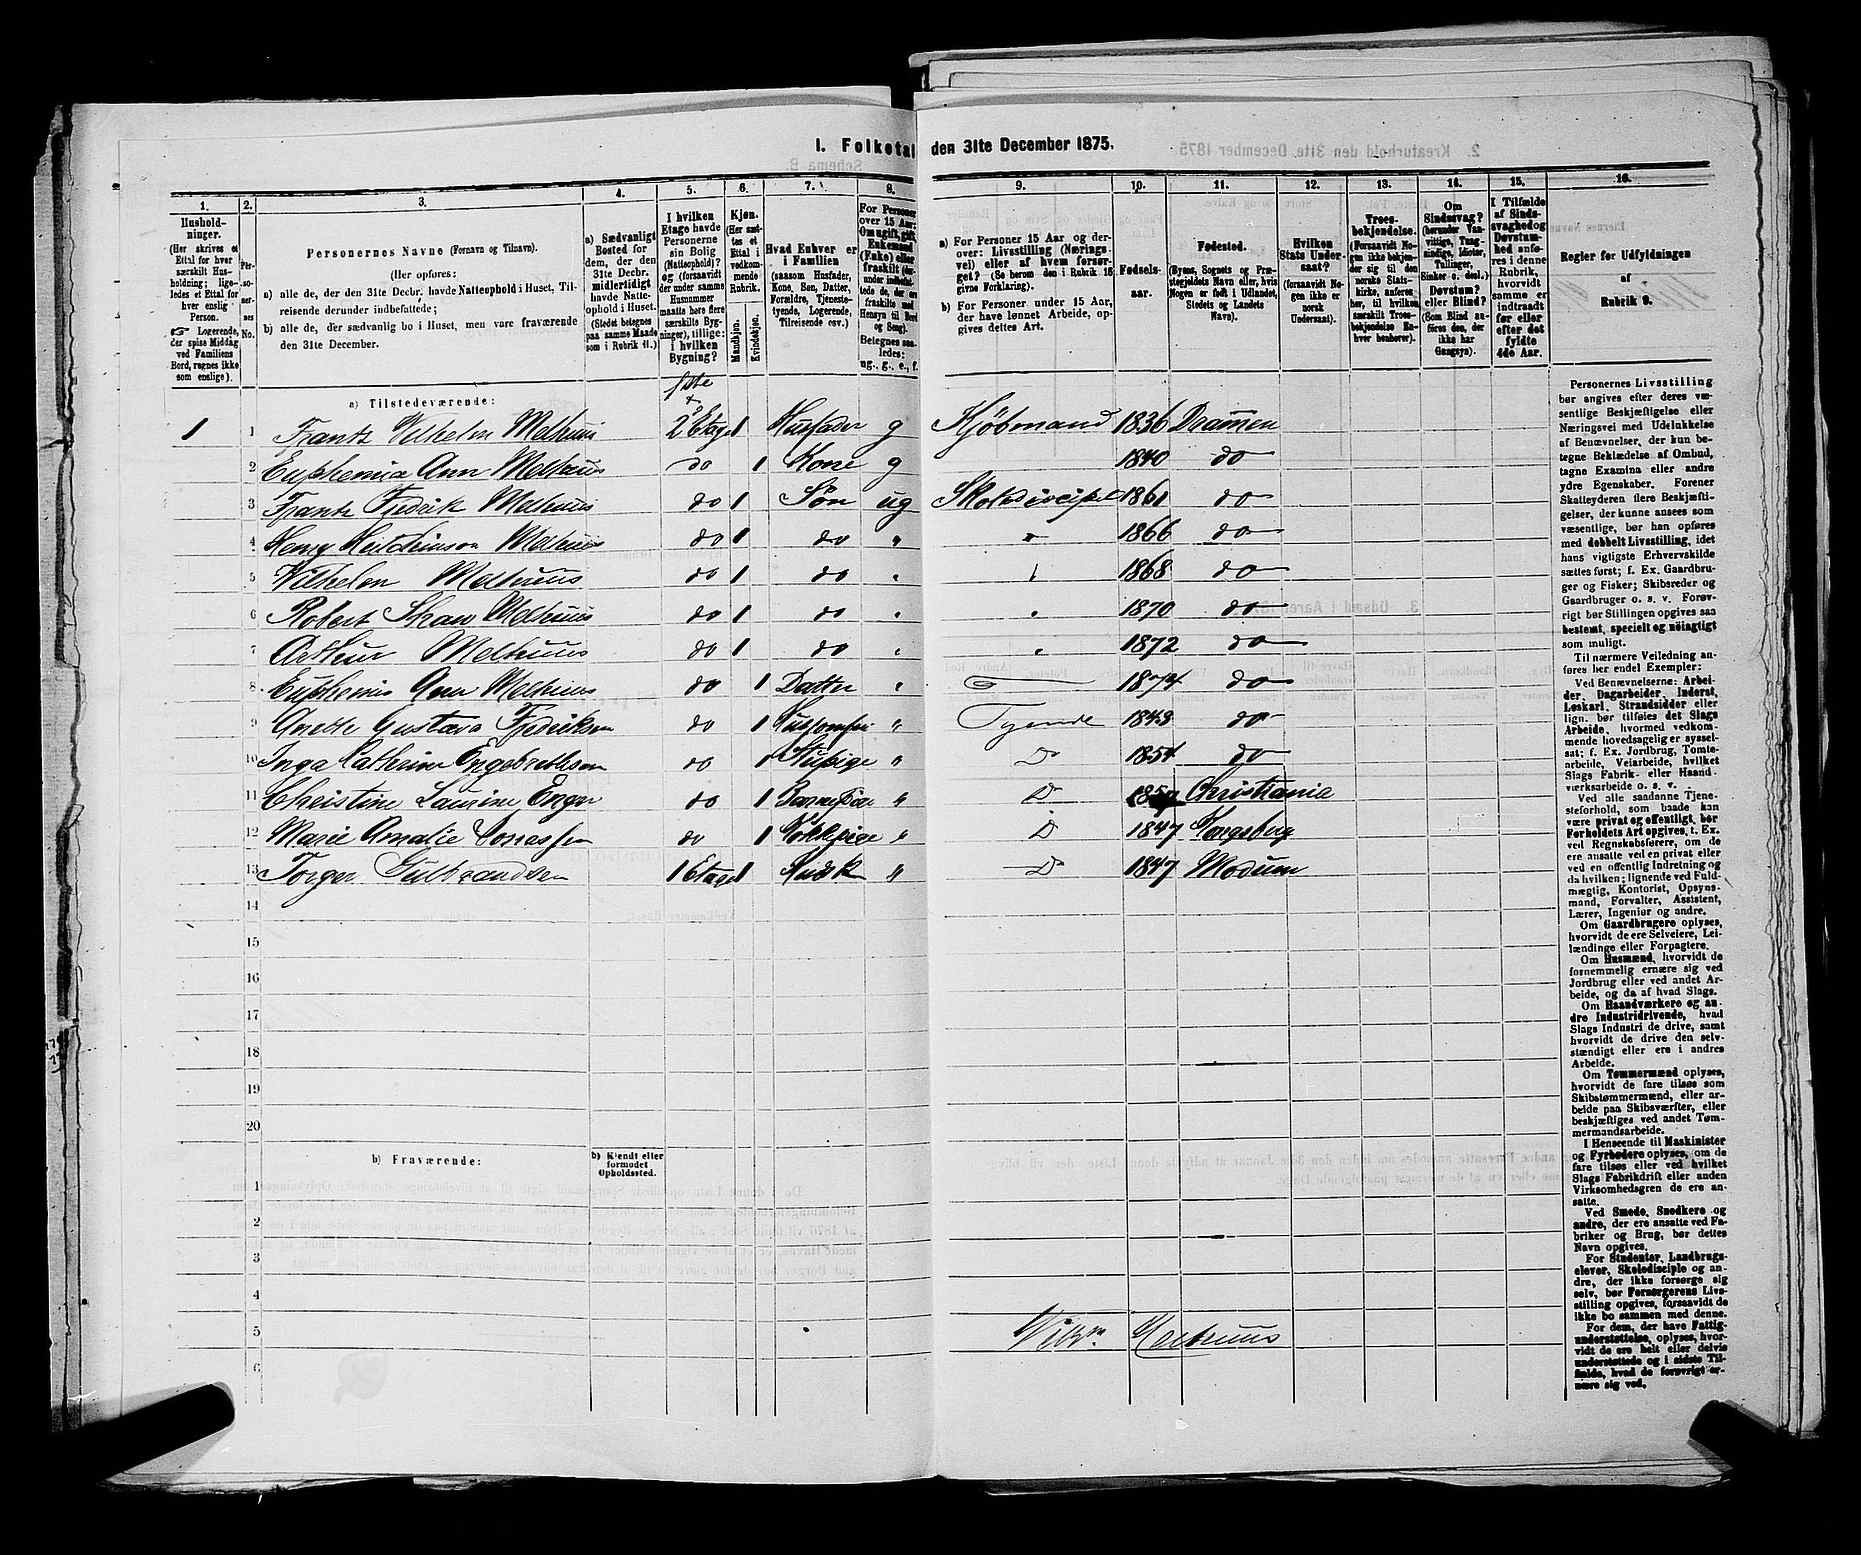 I. Folketal den 31te December 1875.
1. 2. 3. 4. 5. 6. 7. 8. 9. 10. 11. 12. 13. 14. 15. 16.
Hushold-
ninger.
(Her skrives et
Ettal for hver
særskilt Hus-
holdning; lige-
ledes et Ettal for
hver enslig
Person.
☞ Logerende,
der spise Middag
ved Familiens
Bord, regnes ikke
som enslige).
Per-
soner-
nes
No.
Personernes Navne (Fornavn og Tilnavn).
(Her opføres:
a) alle de, der den 31te Decbr. havde Natteophold i Huset, Til-
reisende derunder indbefattede;
b) alle de, der sædvanlig bo i Huset, men vare fraværende
den 31te December.
a) Sædvanligt
Bosted for
dem, der den
31te Decbr.
midlertidigt
havde Natte-
ophold i Huset.
(Stedet betegnes
paa samme Maade
som i Rubrik 11.)
I hvilken
Etage havde
Personerne
sin Bolig
(Natteophold)?
og (forsaavidt
der under samme
Husnummer
maatte høre flere
særskilte Byg-
ninger), tillige:
i hvilken
Bygning?
Kjøn.
(Her sæt-
tes et
Ettal i
vedkom-
mende
Rubrik.
Mandkjøn.
Kvindekjøn.
Hvad Enhver er
i Familien
(saasom Husfader,
Kone, Søn, Datter,
Forældre, Tjeneste-
tyende, Logerende,
Tilreisende osv.)
For Personer
over 15 Aar:
Om ugift, gift,
Enkemand
(Enke) eller
fraskilt
Betegnes saa-
ledes:
ug., g., e., f.
a) For Personer 15 Aar og der-
over: Livsstilling (Nærings-
vei) eller af hvem forsør-
get? (Se herom den i Rubrik 16
givne Forklaring).
b) For Personer under 15 Aar,
der have lønnet Arbeide, op-
gives dettes Art.
Fødsels-
aar.
Fødested.
(Byens, Sognets og Præ-
stegjeldets Navn eller, hvis
Nogen er født i Udlandet,
Stedets og Landets
Navn).
Hvilken
Stats Under-
saat?
(forsaavidt No-
gen ikke er
norsk
Undersaat).
Troes-
bekjendelse.
(Forsaavidt No-
gen ikke bekjen-
der sig til den
norske Stats-
kirke, anføres
her, til hvilken
særskilt Troes-
bekjendelse En-
hver henhører).
Om
Sindssvag?
(herunder Van-
vittige, Tung-
sindige, Idioter,
Tullinger,
Sinker o. desl.)
Døvstum?
eller Blind?
(Som Blind an-
føres den, der
ikke har
Gangsyn).
I Tilfælde
af Sinds-
svaghed og
Døvstum-
hed anfø-
res i denne
Rubrik,
hvorvidt
samme er
indtraadt
før eller
efter det
fyldte
4de Aar.
Regler for Udfyldningen
af
Rubrik 9.
a) Tilstedeværende:
1 1 Frantz Vilhelm Melhuus 2 Etage 1 Husfader g Kjøbmand 1836 Drammen
2 Euphemia Ann Melhuus do 1 Kone g 1840 do
3 Frantz Fredrik Melhuus do 1 Søn ug Skoledisipel 1861 do
4 Henry Hutchinson Melhuus do 1 do " " 1866 do
5 Vilhelm Melhuus do 1 do " " 1868 do
6 Robert Shaw Melhuus do 1 do " " 1870 do
7 Arthur Melhuus do 1 do " " 1872 do
8 Euphemia Ann Melhuus do 1 Datter " 1874 do
9 Anette Gustava Fredriksen do 1 " Tyende 1843 do
10 Inga Cathrine Engebrethsen do 1 Stupige " D 1854 do
11 Christine Laurine Enger do 1 " D Christiania
12 Marie Amalie Jonassen do 1 Kokkepige " D 1847 Kongsberg
13 Torger Gulbrandsen 1 Etage 1 Kudsk " D 1847 Modum
14
15
16
17
18
19
20
b) Fraværende:
b) Kjendt eller
formodet
Opholdssted.
1
2
3
4
5
6
Vilh. Melhuus
Personernes Livsstilling
bør angives efter deres væ-
sentlige Beskjæftigelse eller
Næringsvei med Udelukkelse
af Benævnelser, der kun be-
tegne Beklædelse af Ombud,
tagne Examina eller andre
ydre Egenskaber. Forener
Skatteyderen flere Beskjæfti-
gelser, der kunne ansees som
væsentlige, bør han opføres
med dobbelt Livsstilling, idet
hans vigtigste Erhvervskilde
sættes først; f. Ex. Gaardbru-
ger og Fisker; Skibsreder og
Gaardbruger o. s. v. Forøv-
rigt bør Stillingen opgives saa
bestemt, specielt og nøiagtigt
som muligt.
Til nærmere Veiledning an-
føres her endel Exempler:
Ved Benævnelserne: Arbei-
der, Dagarbeider, Inderst,
Løskarl, Strandsidder eller
lign. bør tilføies det Slags
Arbeide, hvormed vedkom-
mende hovedsagelig er syssel-
sat; f. Ex. Jordbrug, Tomte-
arbeide, Veiarbeide, hvilket
Slags Fabrik- eller Haand-
værksarbeide o. s. v.
Ved alle saadanne Tjene-
steforhold, som baade kan
være privat og offentligt, bør
Forholdets Art opgives, f. Ex.
ved Regnskabsførere, om de
ere ansatte ved en privat eller
ved en offentlig Indretning og
da hvilken; lignende ved Fuld-
mægtig, Kontorist, Opsyns-
mand, Forvalter, Assistent,
Lærer, Ingeniør og andre.
Om Gaardbrugere oplyses,
hvorvidt de ere Selveiere, Lei-
lændinge eller Forpagtere.
Om Husmænd, hvorvidt de
fornemmelig ernære sig ved
Jordbrug eller ved andet Ar-
beide, og da af hvad Slags.
Om Haandværkere og an-
dre Industridrivende, hvad
Slags Industri de drive, samt
hvorvidt de drive den selv-
stændigt eller ere i andres
Arbeide.
Om Tømmermænd oplyses,
hvorvidt de fare tilsøs som
Skibstømmermænd, eller ar-
beide paa Skibsværfter, eller
beskjæftiges ved andet Tøm-
mermandsarbeide.
I Henseende til Maskinister
og Fyrbødere oplyses, om de
fare tilsøs eller ved hvilket
Slags Fabrikdrift eller anden
Virksomhedsgren de ere an-
satte.
Ved Smede, Snedkere og
andre, der ere ansatte ved Fa-
briker og Brug, bør dettes
Navn opgives.
For Studenter, Landbrugs-
elever, Skoledisciple og an-
dre, der ikke forsørge sig
selv, bør Forsørgerens Livs-
stilling opgives, forsaavidt de
ikke bo sammen med denne.
For dem, der have Fattig-
understøttelse, oplyses, hvor-
vidt de ere helt eller delvis
understøttede og i sidste Til-
fælde, hvad de forøvrigt er-
nære sig ved.